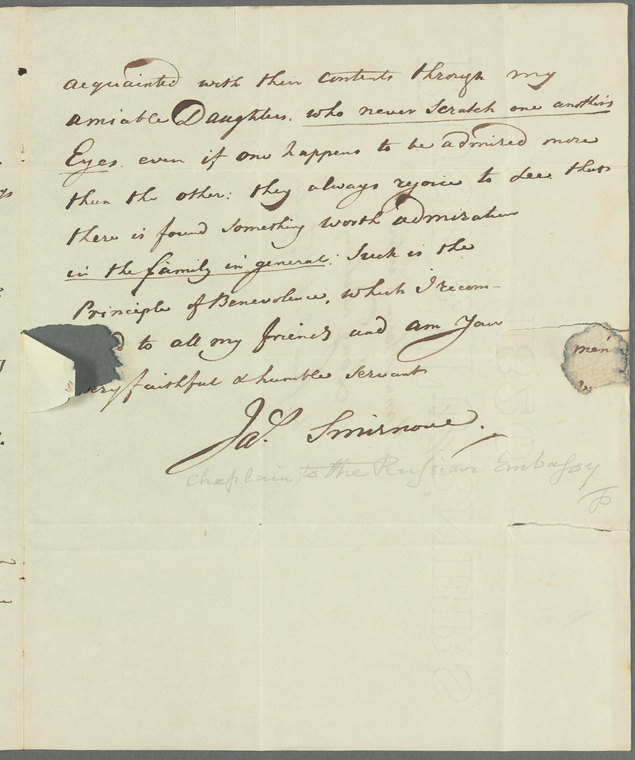 acquainted with their contents through my
amiable Daughters, who never scratch one another's
Eyes, even if one happens to be admired more
than the other: they always rejoice to see that
there is found something worth admiration
in the family in general: Such is the
Principle of Benevolence, which I recom-
d to all my friends and am Your
men
ery faithful & humble Servant
Jas. Smirnove.
Chaplain to the Russian Embassy